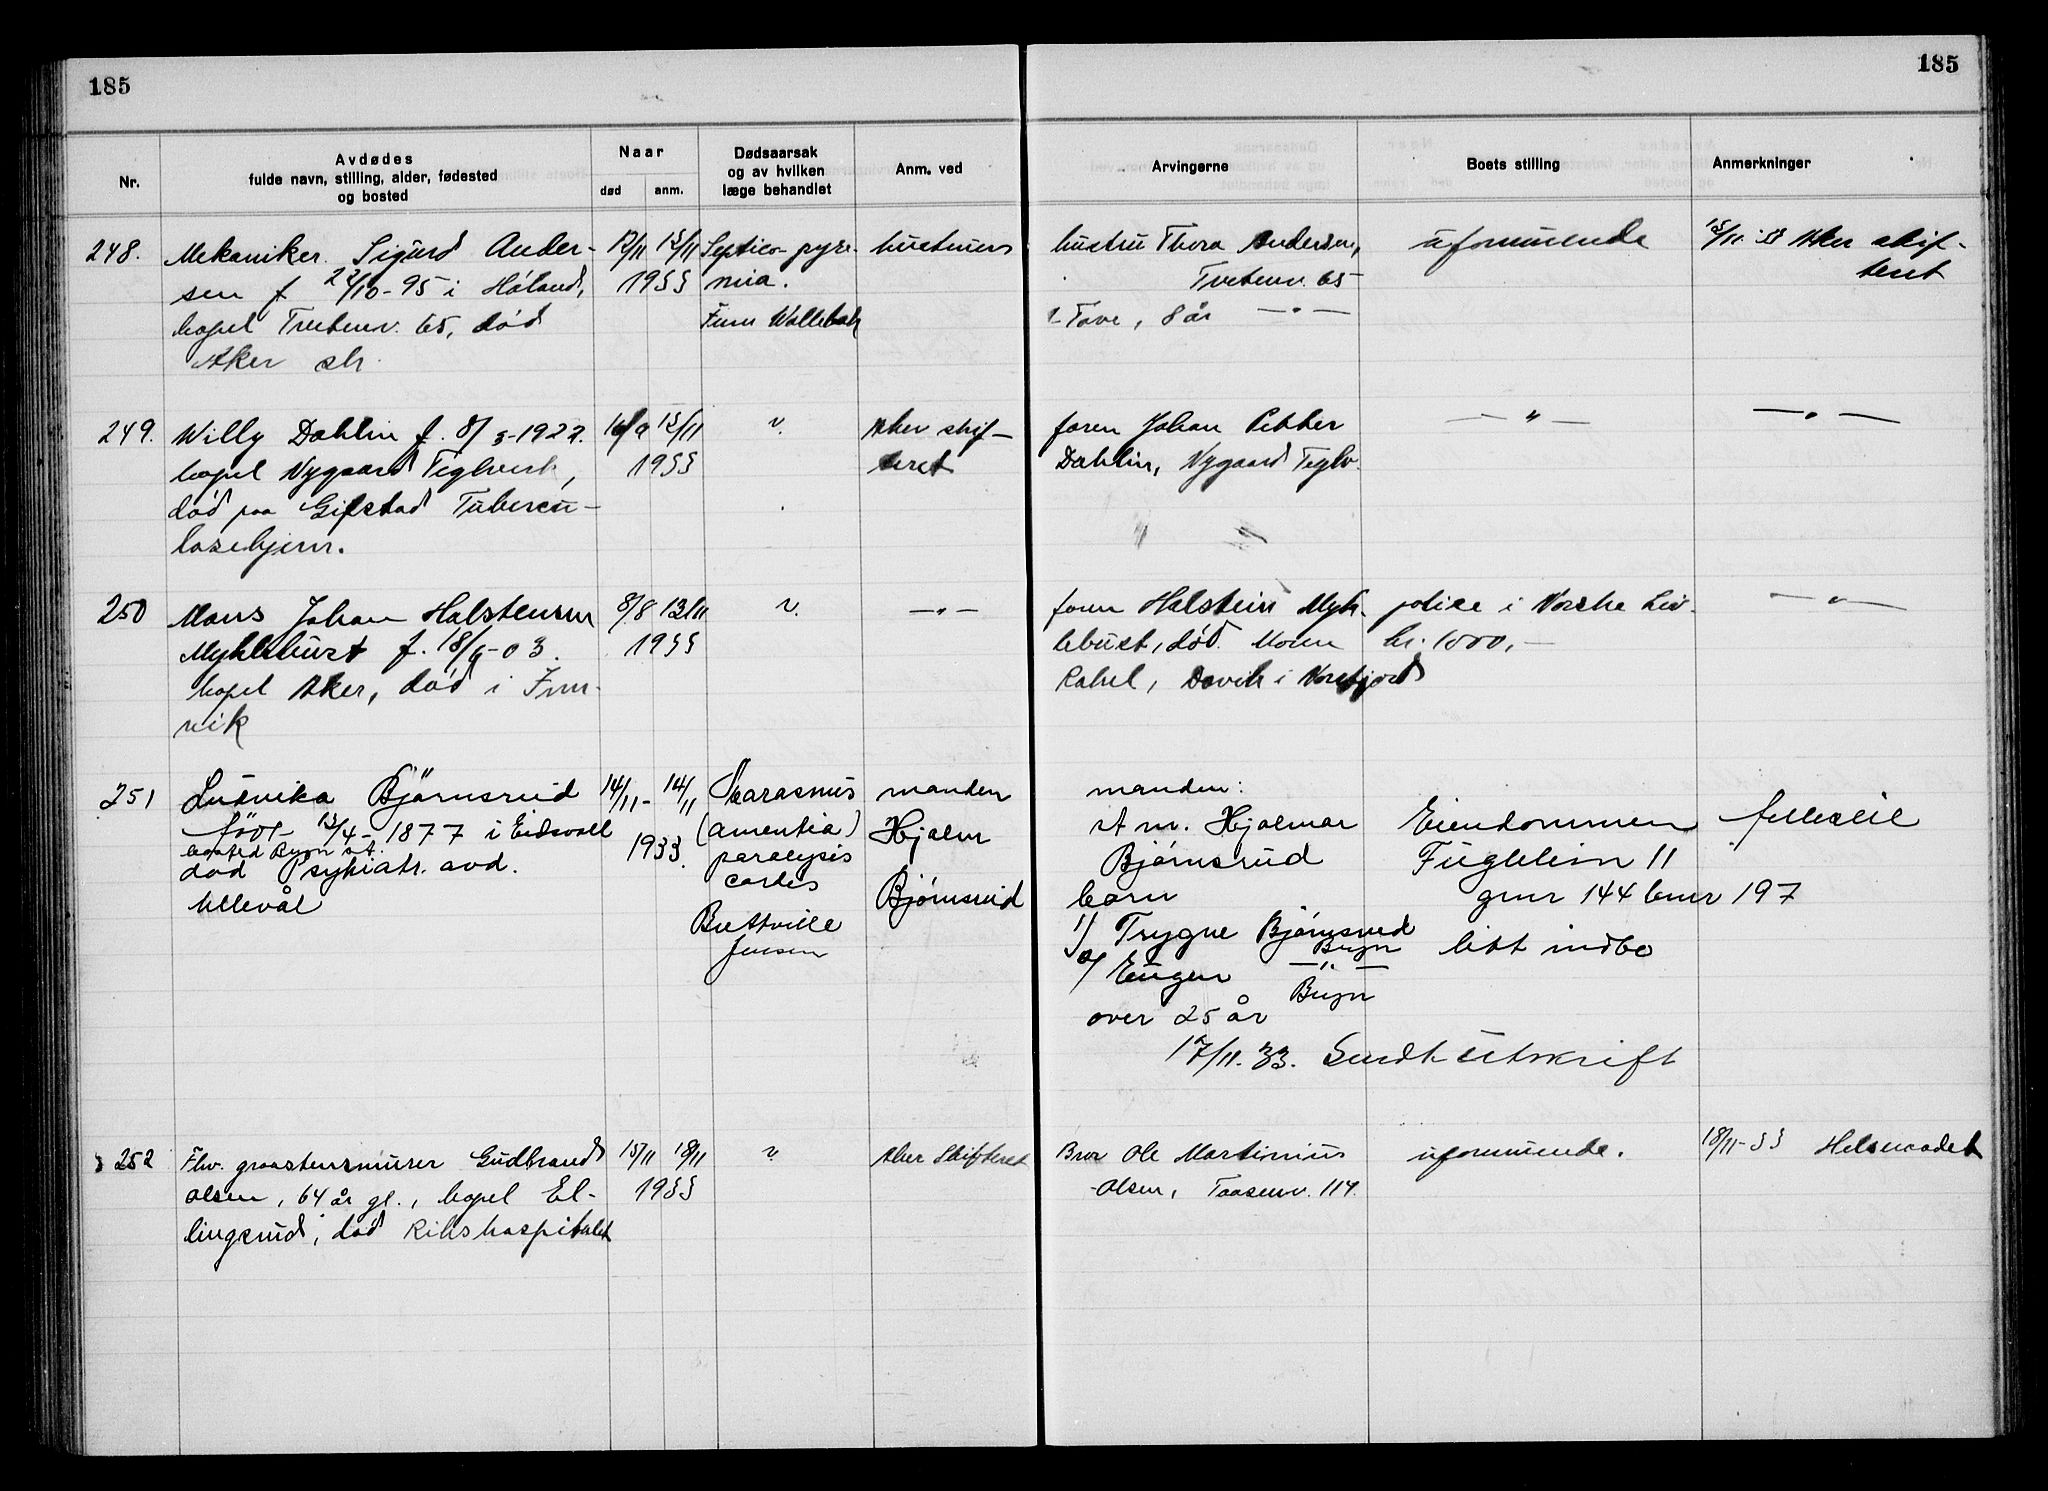 185
185
Nr.
Avdødes
fulde navn, stilling, alder, fødested
og bosted
Naar
død
anm.
Dødsaarsak
og av hvilken
læge behandlet
Anm. ved
Arvingerne
Boets stilling
Anmerkninger
248.
Mekaniker Sigurd Ander-
sen f 22/10-95 i Höland,
bopel Tvetenv. 65, död
Aker sh.
12/11 15/11
1933
Septico-pyre-
mia.
Finn
hustruen
hustru Thora Andersen,
Tvetenv. 65
1. Tove, 8 år —"—
uformuende
15/11-33 Aker skif-
teret
249.
Willy Dahlin f. 8/3-1922.
bopel Nygaard Teglverk,
död paa Gifstad Tubercu-
losehjem.
16/9 15/11
1933
?
Aker skif-
teret
faren Johan Petter
Dahlin, Nygaard Teglv.
—"—
—"—
250
Mons Johan Halstensen
Myklebust f. 18/9-03.
bopel Aker, död i
vik
8/8 13/11
1933
?
—"—
faren Halstein Myk-
lebust, död. Moren
Rahel, Davik i Nordfjord
police i Norske Liv.
kr. 1000,-
—"—
251
Ludvika Björnsrud
född 13/4-1877 i Eidsvoll
bosted Bryn st.
død Psykiatr. avd.
Ullevål
14/11- 14/11
1933.
Marasmus
(amentia)
paralysis
cordis
Buttville
Jensen
manden
Hjalm
Bjørnsrud
manden:
st m. Hjalmar
Bjørnsrud
barn
1/ Trygve Bjørnsrud
Bryn
2/ Eugen —"—
Bryn
over 25 år
17/11.33. Sendt utskrift
Eiendommen
Fugleheim 11
gnr 144 bnr 197
litt indbo
felleseie
252
Fhv. graastensmurer Gudbrand
Olsen, 64 år gl., bopel El-
lingsrud, död Rikshospitalet
15/11 18/11
1933
?
Aker Skifteret
Bror Ole Martinius
Olsen, Taasenv. 114.
uformuende.
18/11-33 Helseraadet